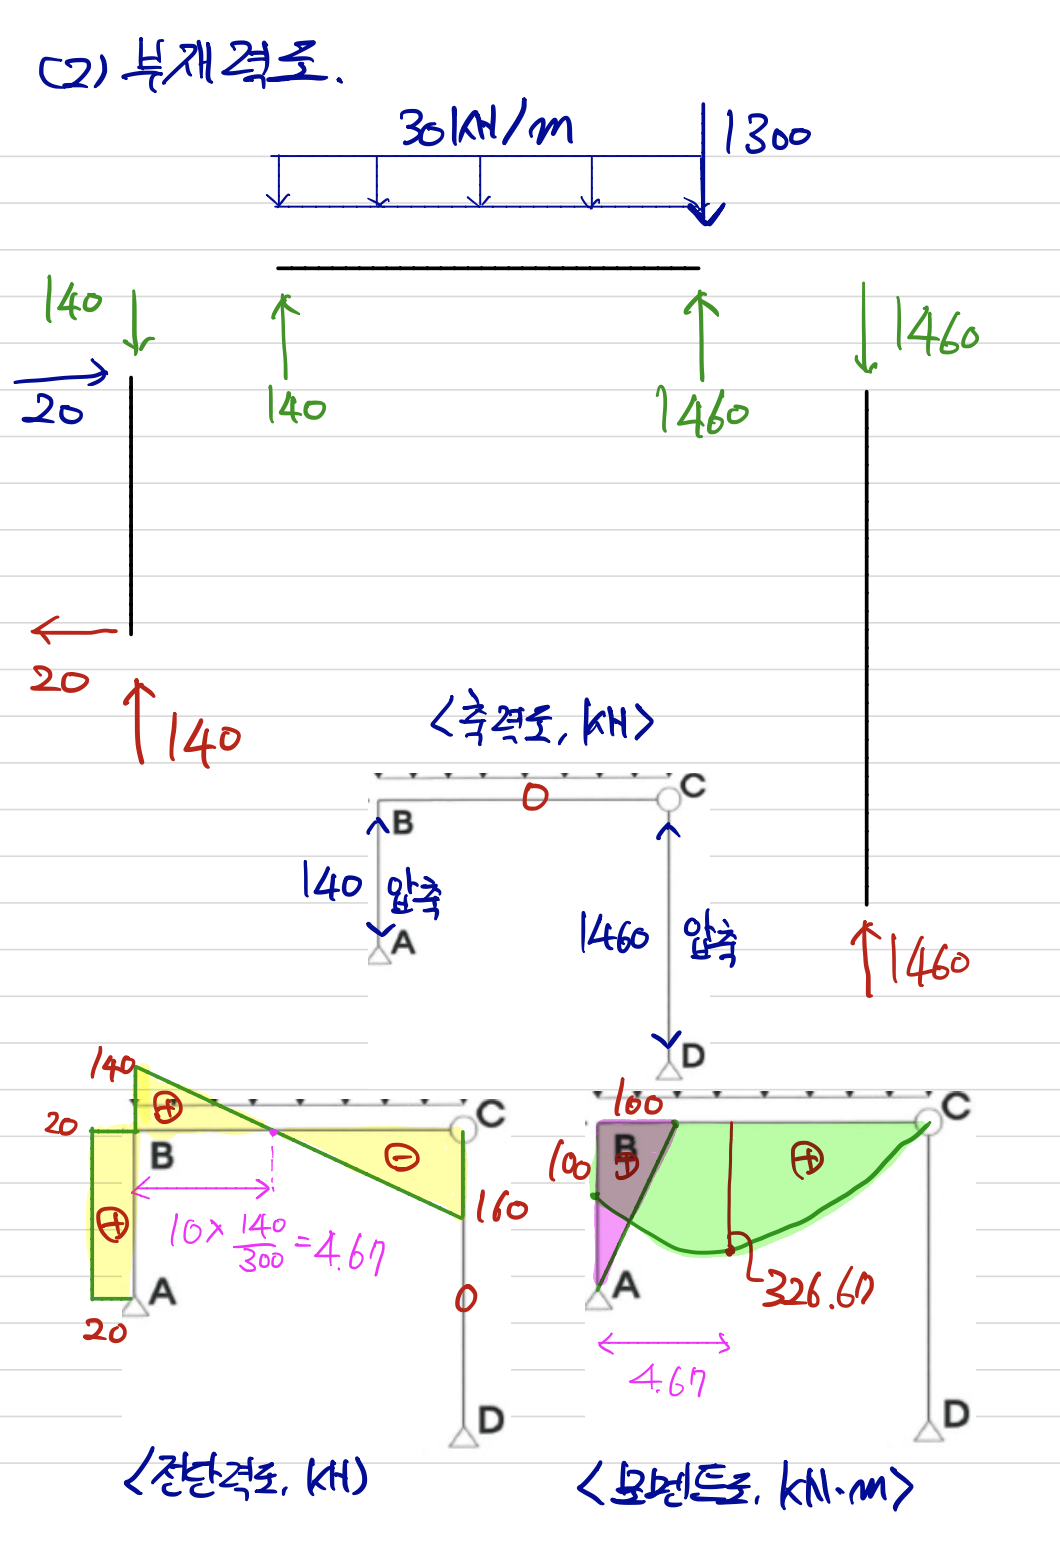 (2) 부재력도.
30kN/m
1300
140
20
140
1460
1460
20
140
<축력도, kN>
0
C
B
140 압축
A
1460 압축
1460
D
140
⊕
20
C
B
⊖
⊕
160
10 × 140/300 = 4.67
A
0
20
D
<전단력도, kN>
100
C
B
100
⊕
⊕
A
326.67
4.67
D
<모멘트도, kN·m>